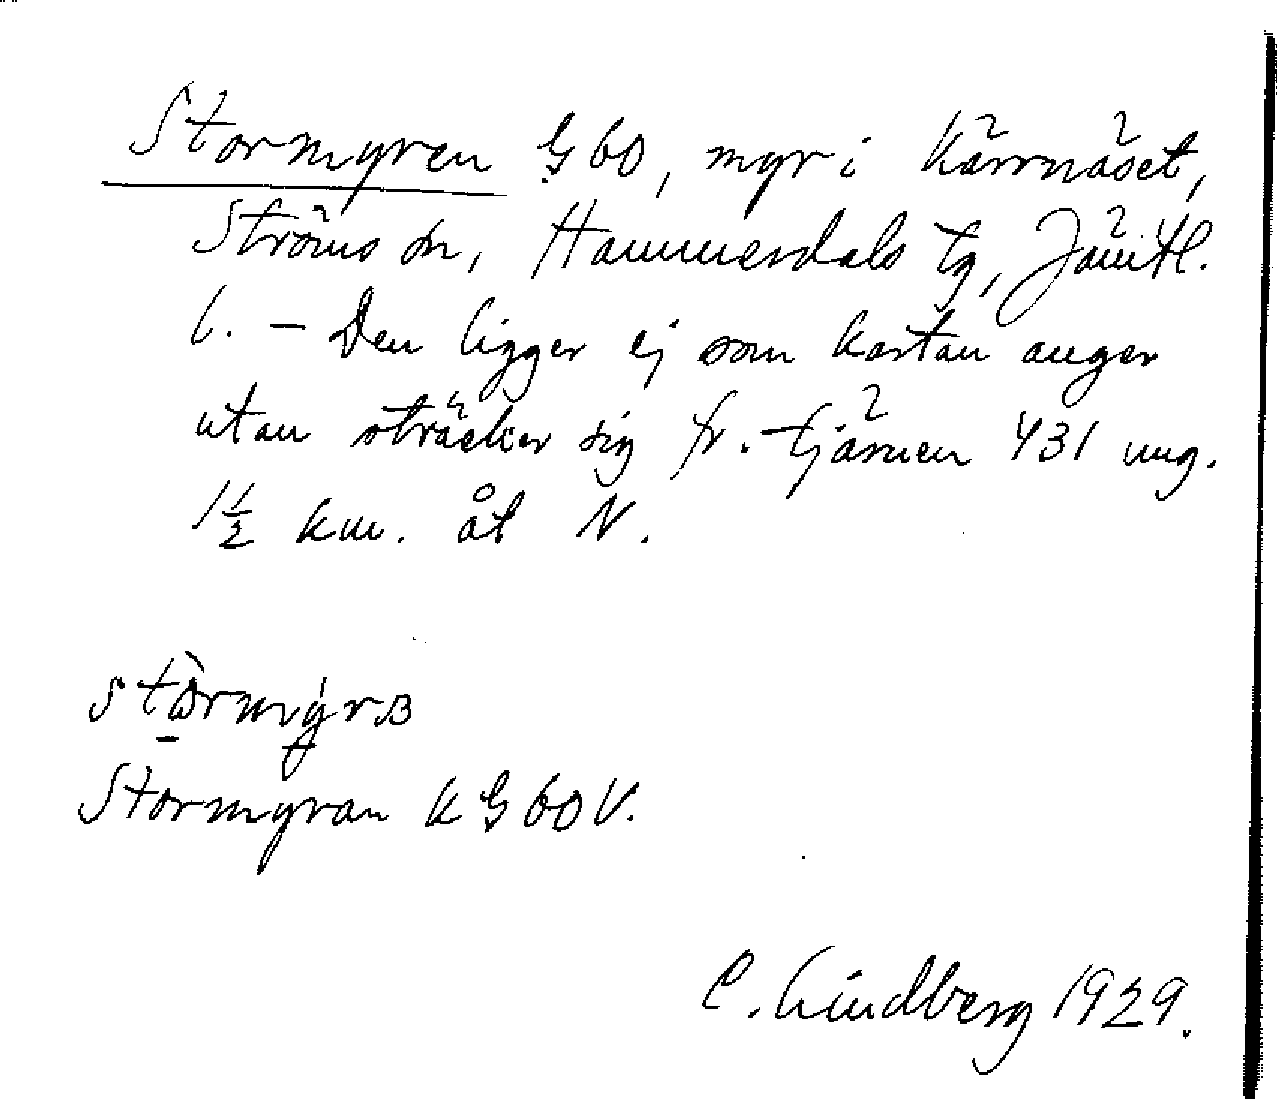 Stormyren G 60, myr i Kärrnäset,
Ströms sn, Hammerdals tg, Jämtl.
l. – Den ligger ej som kartan anger
utan sträcker sig fr. tjärnen 431 ung.
1½ km. åt N.
Stormyran k G 60 V.
C. Lindberg 1929.